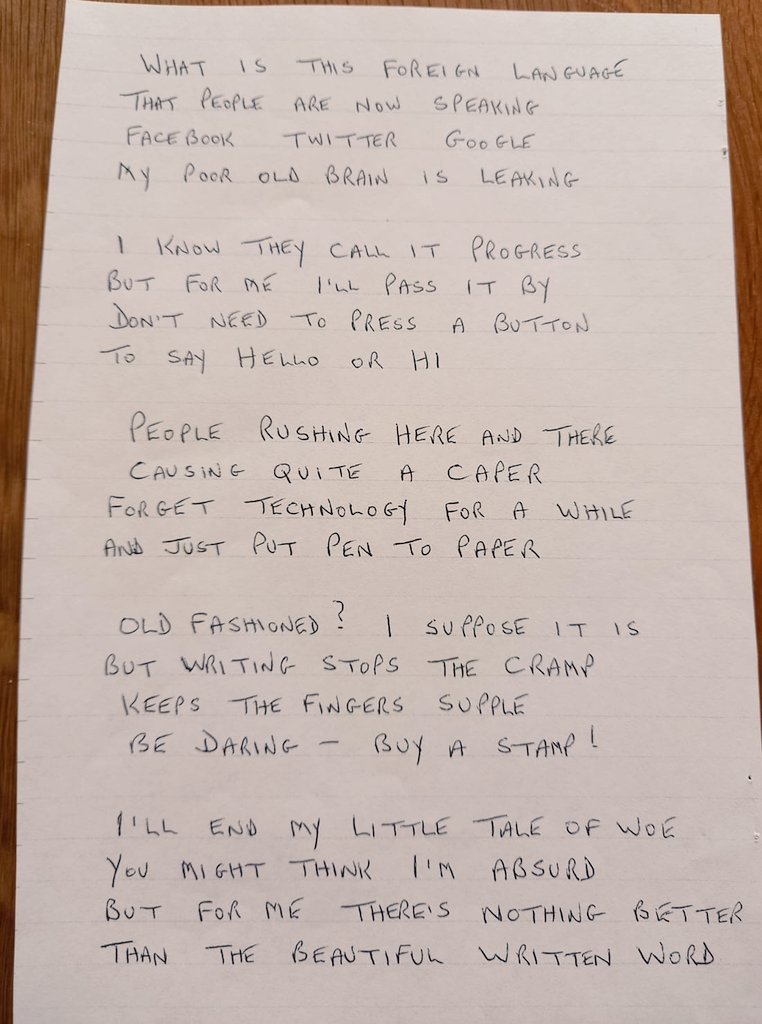 WHAT IS THIS FOREIGN LANGUAGE
THAT PEOPLE ARE NOW SPEAKING
FACEBOOK TWITTER GOOGLE
MY POOR OLD BRAIN IS LEAKING
I KNOW THEY CALL IT PROGRESS
BUT FOR ME I'LL PASS IT BY
DON'T NEED TO PRESS A BUTTON
TO SAY HELLO OR HI
PEOPLE RUSHING HERE AND THERE
CAUSING QUITE A CAPER
FORGET TECHNOLOGY FOR A WHILE
AND JUST PUT PEN TO PAPER
OLD FASHIONED? I SUPPOSE IT IS
BUT WRITING STOPS THE CRAMP
KEEPS THE FINGERS SUPPLE
BE DARING - BUY A STAMP!
I'LL END MY LITTLE TALE OF WOE
YOU MIGHT THINK I'M ABSURD
BUT FOR ME THERE'S NOTHING BETTER
THAN THE BEAUTIFUL WRITTEN WORD